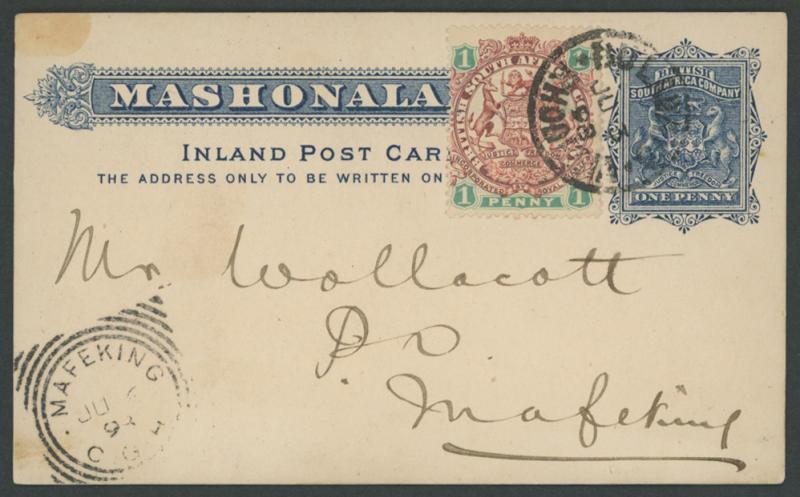 MASHONALA
INLAND POST CAR
THE ADDRESS ONLY TO BE WRITTEN ON
1 1
JUSTICE
COMMERCE
INCORPORATED ROYAL
1 PENNY 1
SOUTH AFRICA COMPANY
ONE PENNY
JU
98
Mr Wollacott
P.O.
Mafeking
MAFEKING
JU
C.G.H